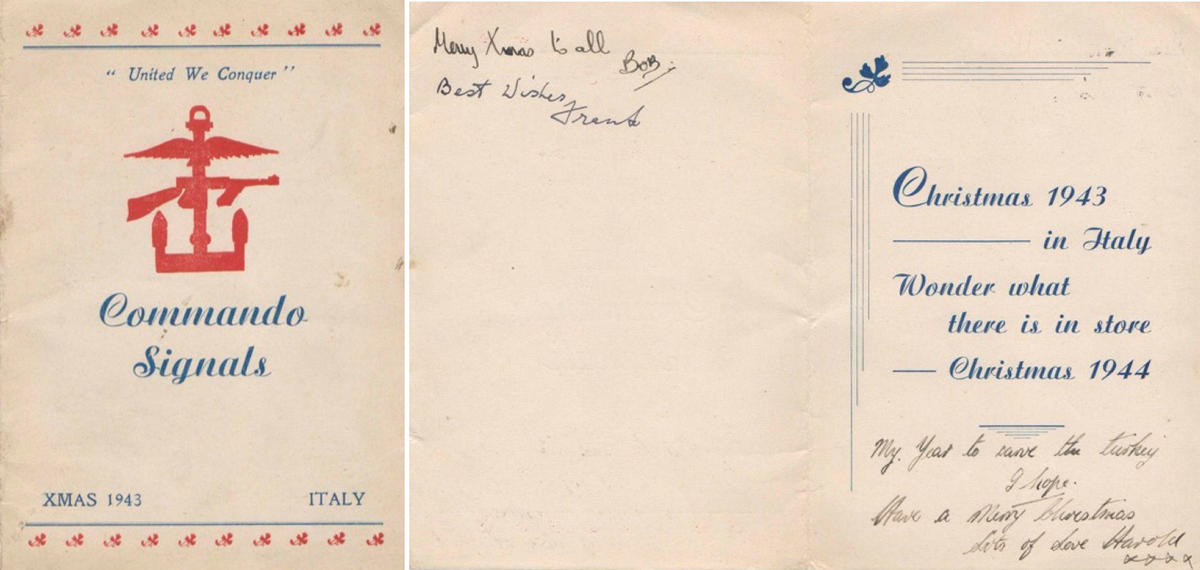 “ United We Conquer ”
Commando
Signals
XMAS 1943 ITALY
Merry Xmas to all
BOB.
Best Wishes
Frank
Christmas 1943
in Italy
Wonder what
there is in store
Christmas 1944
My. Year to carve the turkey
I hope.
Have a Merry Christmas
Lots of Love Harold
x x x x